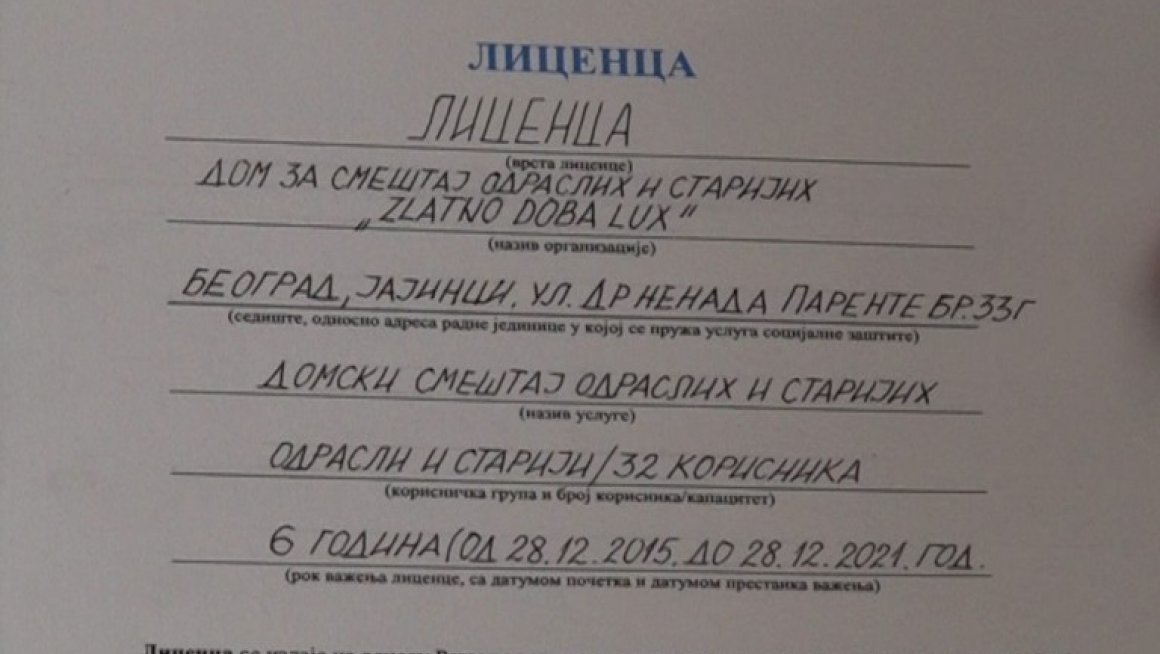 ЛИЦЕНЦА
ЛИЦЕНЦА
(врста лиценце)
ДОМ ЗА СМЕШТАЈ ОДРАСЛИХ И СТАРИЈИХ
„ZLATNO DOBA LUX“
(назив организације)
БЕОГРАД, ЈАЈИНЦИ, УЛ. ДР НЕНАДА ПАРЕНТЕ БР. 33Г
(седиште, односно адреса радне јединице у којој се пружа услуга социјалне заштите)
ДОМСКИ СМЕШТАЈ ОДРАСЛИХ И СТАРИЈИХ
(назив услуге)
ОДРАСЛИ И СТАРИЈИ/32 КОРИСНИКА
(корисничка група и број корисника/капацитет)
6 ГОДИНА (ОД 28.12.2015. ДО 28.12.2021. ГОД.
(рок важења лиценце, са датумом почетка и датумом престанка важења)
Лиценца се